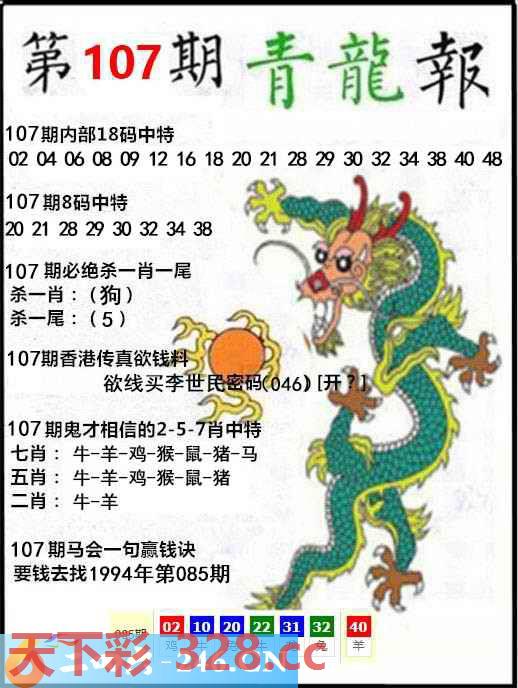 第107期青龍報
107期内部18码中特
02 04 06 08 09 12 16 18 20 21 28 29 30 32 34 38 40 48
107期8码中特
20 21 28 29 30 32 34 38
107期必绝杀一肖一尾
杀一肖：（狗）
杀一尾：（5）
107期香港传真欲钱料
欲线买李世民密码(046)[开?]
107期鬼才相信的2-5-7肖中特
七肖：牛-羊-鸡-猴-鼠-猪-马
五肖：牛-羊-鸡-猴-鼠-猪
二肖：牛-羊
107期马会一句赢钱诀
要钱去找1994年第085期
02 10 20 22 31 32 40
天下彩-328.cc
羊